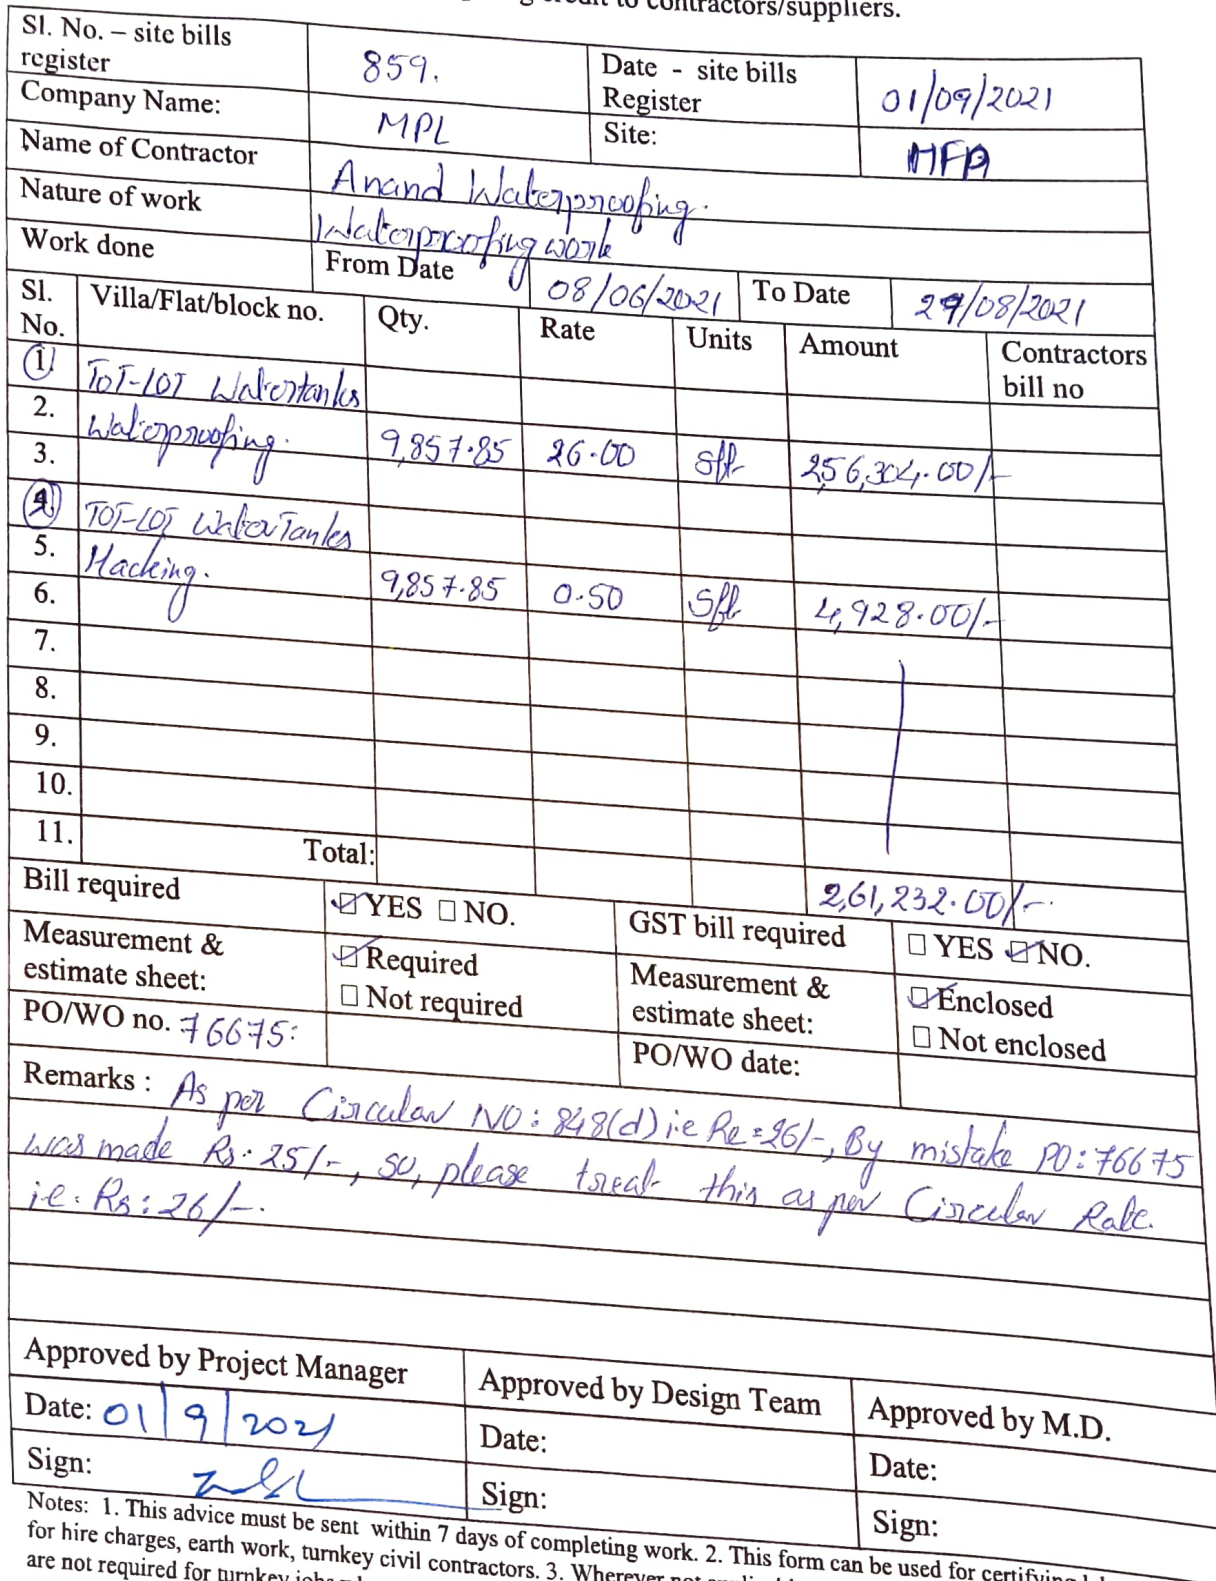 credit to contractors/suppliers.
Sl. No. – site bills register 859. Date - site bills Register 01/09/2021
Company Name: MPL Site: MFA
Name of Contractor Anand Waterproofing.
Nature of work Waterproofing work
Work done From Date 08/06/2021 To Date 29/08/2021
Sl. No. Villa/Flat/block no. Qty. Rate Units Amount Contractors bill no
1. TOT-LOT Watertanks
2. Waterproofing. 9,857.85 26.00 Sft 256,304.00/-
3.
2. TOT-LOT WaterTanks
5. Hacking. 9,857.85 0.50 Sft 4,928.00/-
6.
7.
8.
9.
10.
11.
Total: 2,61,232.00/-
Bill required ☑YES ☐NO. GST bill required ☐YES ☑NO.
Measurement & estimate sheet: ☑Required ☐Not required Measurement & estimate sheet: ☑Enclosed ☐Not enclosed
PO/WO no. 76675: PO/WO date:
Remarks : As per Circular NO: 848(d) i.e Rs=26/-, By mistake PO: 76675
was made Rs. 25/-, so, please treat this as per Circular Rate.
i.e. Rs: 26/-.
Approved by Project Manager Approved by Design Team Approved by M.D.
Date: 01/9/2021 Date: Date:
Sign: Sign: Sign:
Notes: 1. This advice must be sent within 7 days of completing work. 2. This form can be used for certifying
for hire charges, earth work, turnkey civil contractors. 3. Wherever not
are not required for turnkey